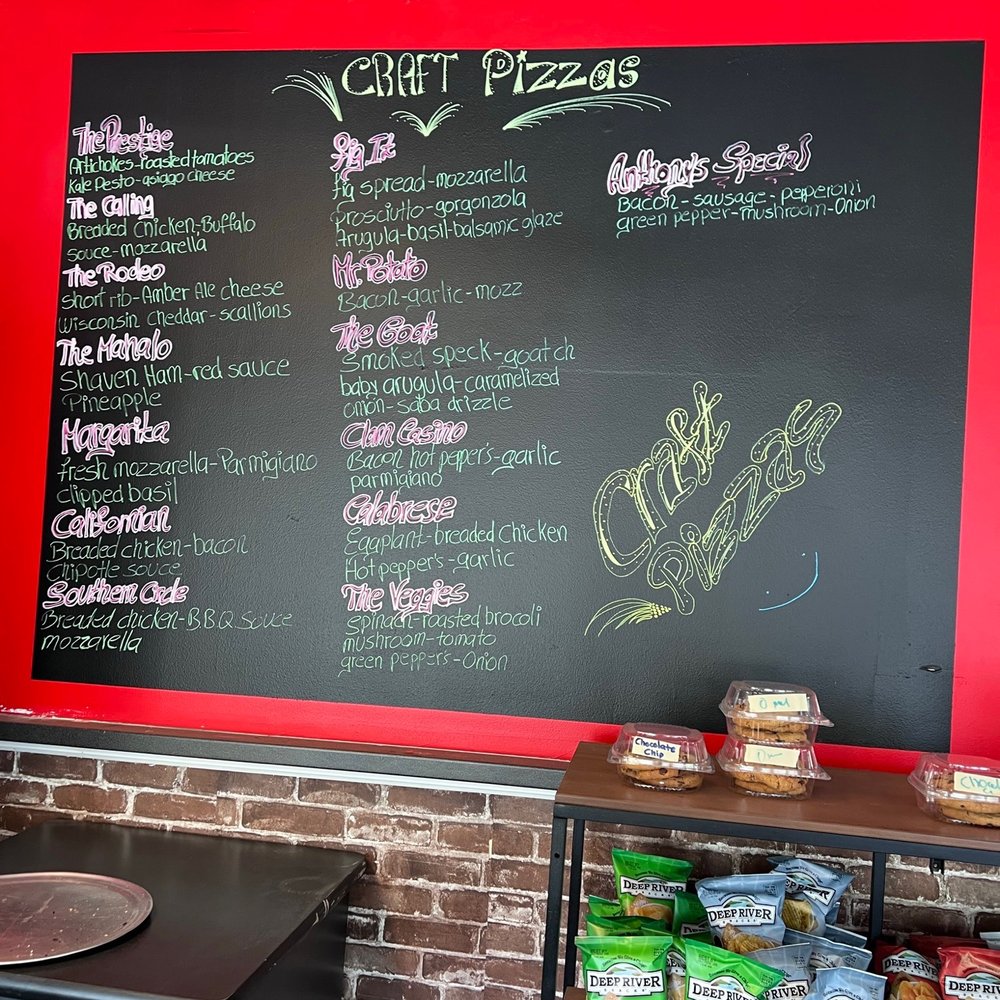 CRAFT Pizzas
The Prestige
Artichokes-roasted tomatoes
Kale Pesto-asiago cheese
The Calling
Breaded Chicken-Buffalo
souce-mozzarella
The Rodeo
Short rib-Amber Ale cheese
Wisconsin Cheddar-scallions
The Mahalo
Shaven Ham-red sauce
Pineapple
Margarita
fresh mozzarella-Parmigiano
clipped basil
Californian
Breaded chicken-bacon
Chipotle souce
Southern Circle
Breaded chicken-B.B.Q Souce
mozzarella
Fig It
fig spread-mozzarella
Prosciutto-gorgonzola
Arugula-basil-balsamic glaze
Mr. Potato
Bacon-garlic-mozz
The Goat
Smoked speck-goat ch
baby arugula-caramelized
onion-saba drizzle
Clam Casino
Bacon hot pepper's-garlic
parmigiano
Calabrese
Eggplant-breaded Chicken
Hot pepper's-garlic
The Veggies
spinach-roasted brocoli
mushroom-tomato
green pepper's-Onion
Anthony's Special
Bacon-sausage-pepperoni
green pepper-mushroom-Onion
Craft
Pizzas
Chocolate
Chip
DEEP RIVER
SNACKS
DEEP RIVER
SNACKS
DEEP RIVER
DEEP RIVER
SNACKS
DEEP RIVER
DEEP RIVER
DEEP RIVER